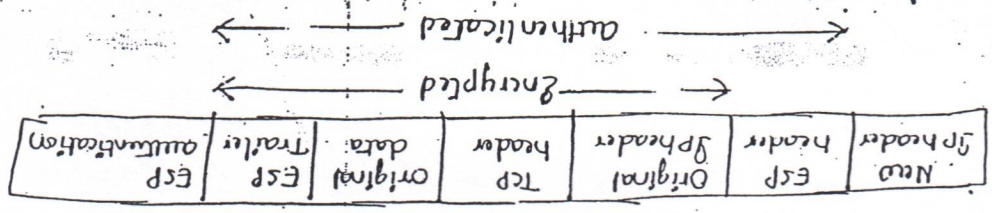 New
Ip header
ESP
header
Original
Ipheader
TCP
header
original
data
ESP
Trailer
ESP
authentication
Encrypted
authenticated